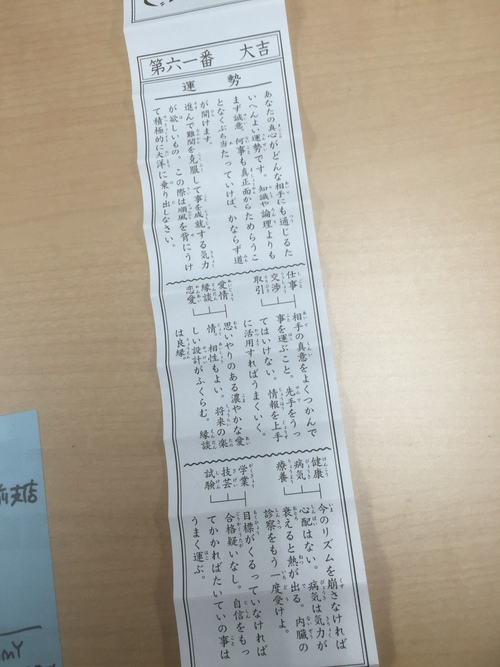 第六一番　大吉
運勢
あなたの真心がどんな相手にも通じるた
いへんよい運勢です。知識や論理よりも
まず誠意、何事も真正面からためらうこ
となくぶち当たっていけば、かならず道
が開けます。
進んで難関を克服して事を成就する気力
が欲しいもの、この際は順風を背にうけ
て積極的に大洋に乗り出しなさい。
仕事
交渉
取引
相手の真意をよくつかんで
事を運ぶこと。先手をうっ
てはいけない。情報を上手
に活用すればうまくいく。
愛情
縁談
恋愛
思いやりのある濃やかな愛
情。相性もよい。将来の楽
しい設計がふくらむ。縁談
は良縁
健康
病気
療養
今のリズムを崩さなければ
心配はない。病気は気力が
衰えると熱が出る。内臓の
診察をもう一度受けよ。
学業
技芸
試験
目標がくるっていなければ
合格疑いなし。自信をもっ
てかかればたいていの事は
うまく運ぶ。
支店
MY